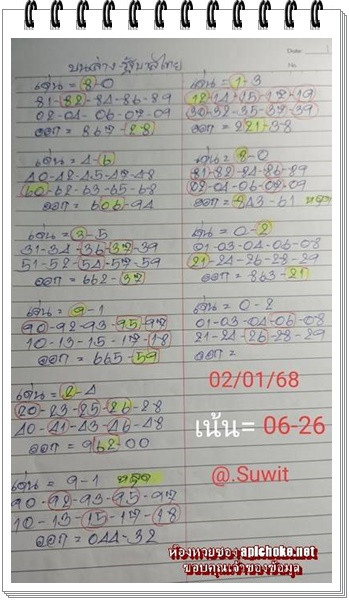 Date:
No.
บนล่าง รัฐบาลไทย
เด่น = 8-0
81-82-84-86-89
02-04-06-07-09
ออก = 867-28
เด่น = 4-6
40-42-45-47-48
60-62-63-65-68
ออก = 606-94
เด่น = 3-5
31-34-36-37-39
51-52-54-57-59
ออก = 662-37
เด่น = 9-1
90-92-93-95-97
10-13-15-17-18
ออก = 665-59
เด่น = 2-4
20-23-25-26-28
40-41-43-46-48
ออก = 962-00
เด่น = 9-1 หลุด
90-92-93-95-97
10-13-15-17-18
ออก = 044-32
เด่น = 1-3
12-14-15-17-19
30-32-35-37-39
ออก = 221-38
เด่น = 8-0
81-82-84-86-89
02-04-06-07-09
ออก = 843-61
เด่น = 0-2
01-03-04-06-08
21-24-26-28-29
ออก = 863-21
เด่น = 0-2
01-03-04-06-08
21-24-26-28-29
ออก =
02/01/68
เน้น= 06-26
@.Suwit
ห้องหวยซอง apichoke.net
ขอบคุณเจ้าของข้อมูล